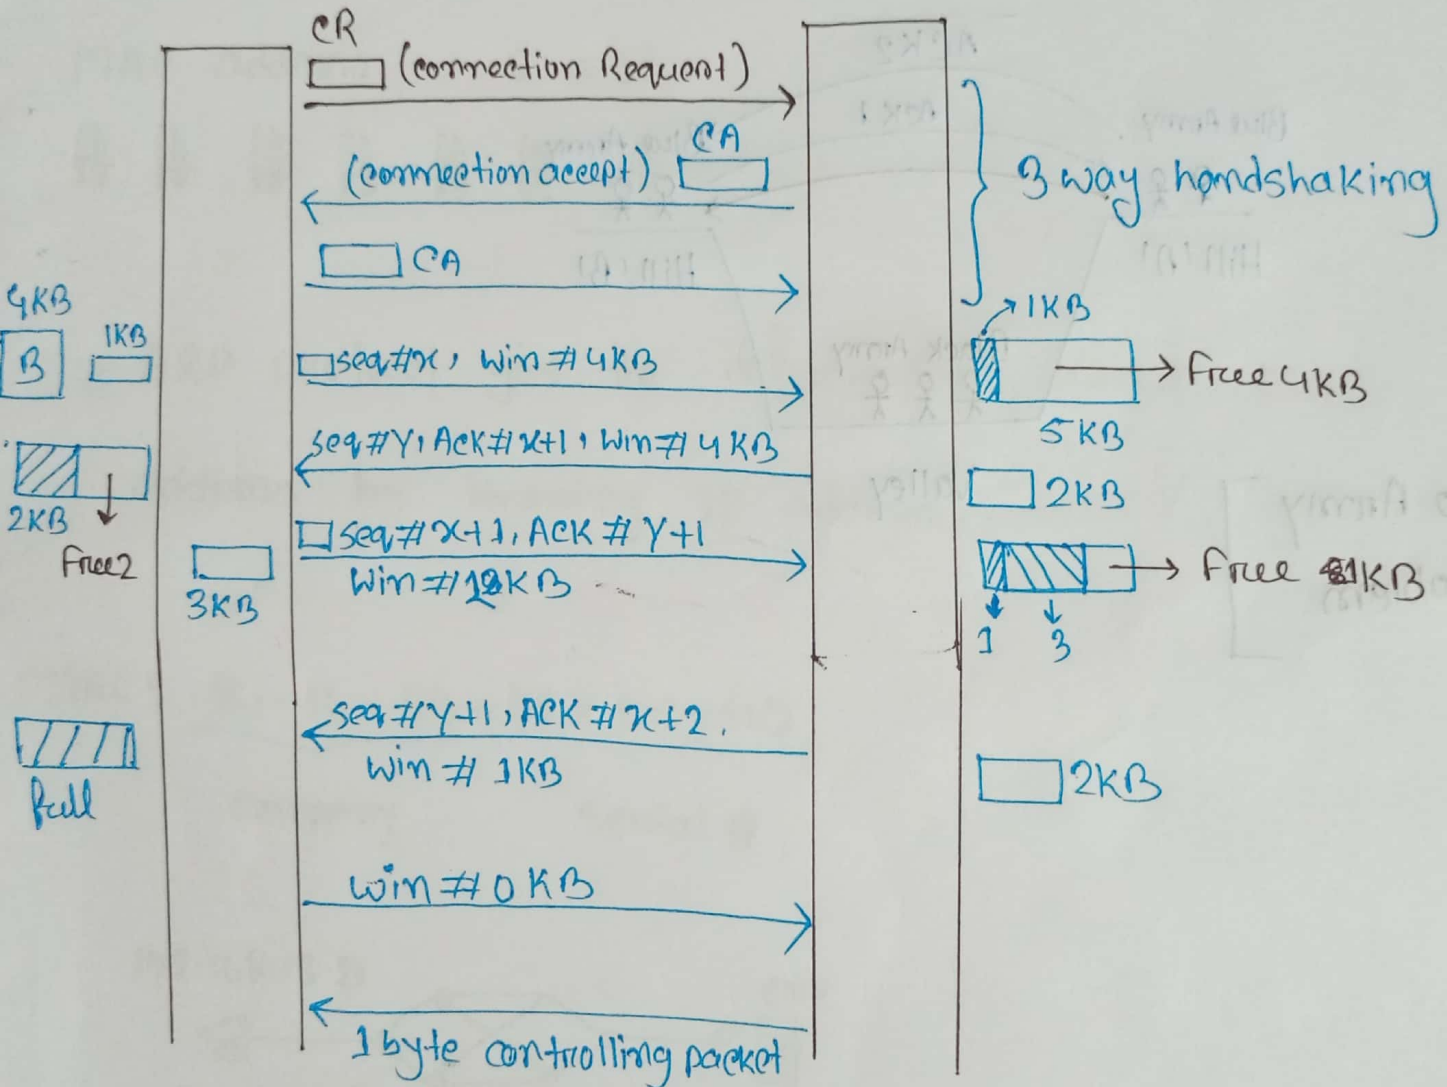 CR
(connection Request)
CA
(connection accept)
CA
3 way handshaking
4KB
B
1KB
seq#x, Win#4KB
1KB
Free 4KB
5KB
seq#Y, Ack#x+1, Win#4KB
2KB
Free2
2KB
3KB
seq#x+1, ACK#Y+1
Free 1KB
1
3
seq#Y+1, ACK#x+2.
Win# 1KB
full
2KB
Win#0KB
1 byte controlling packet